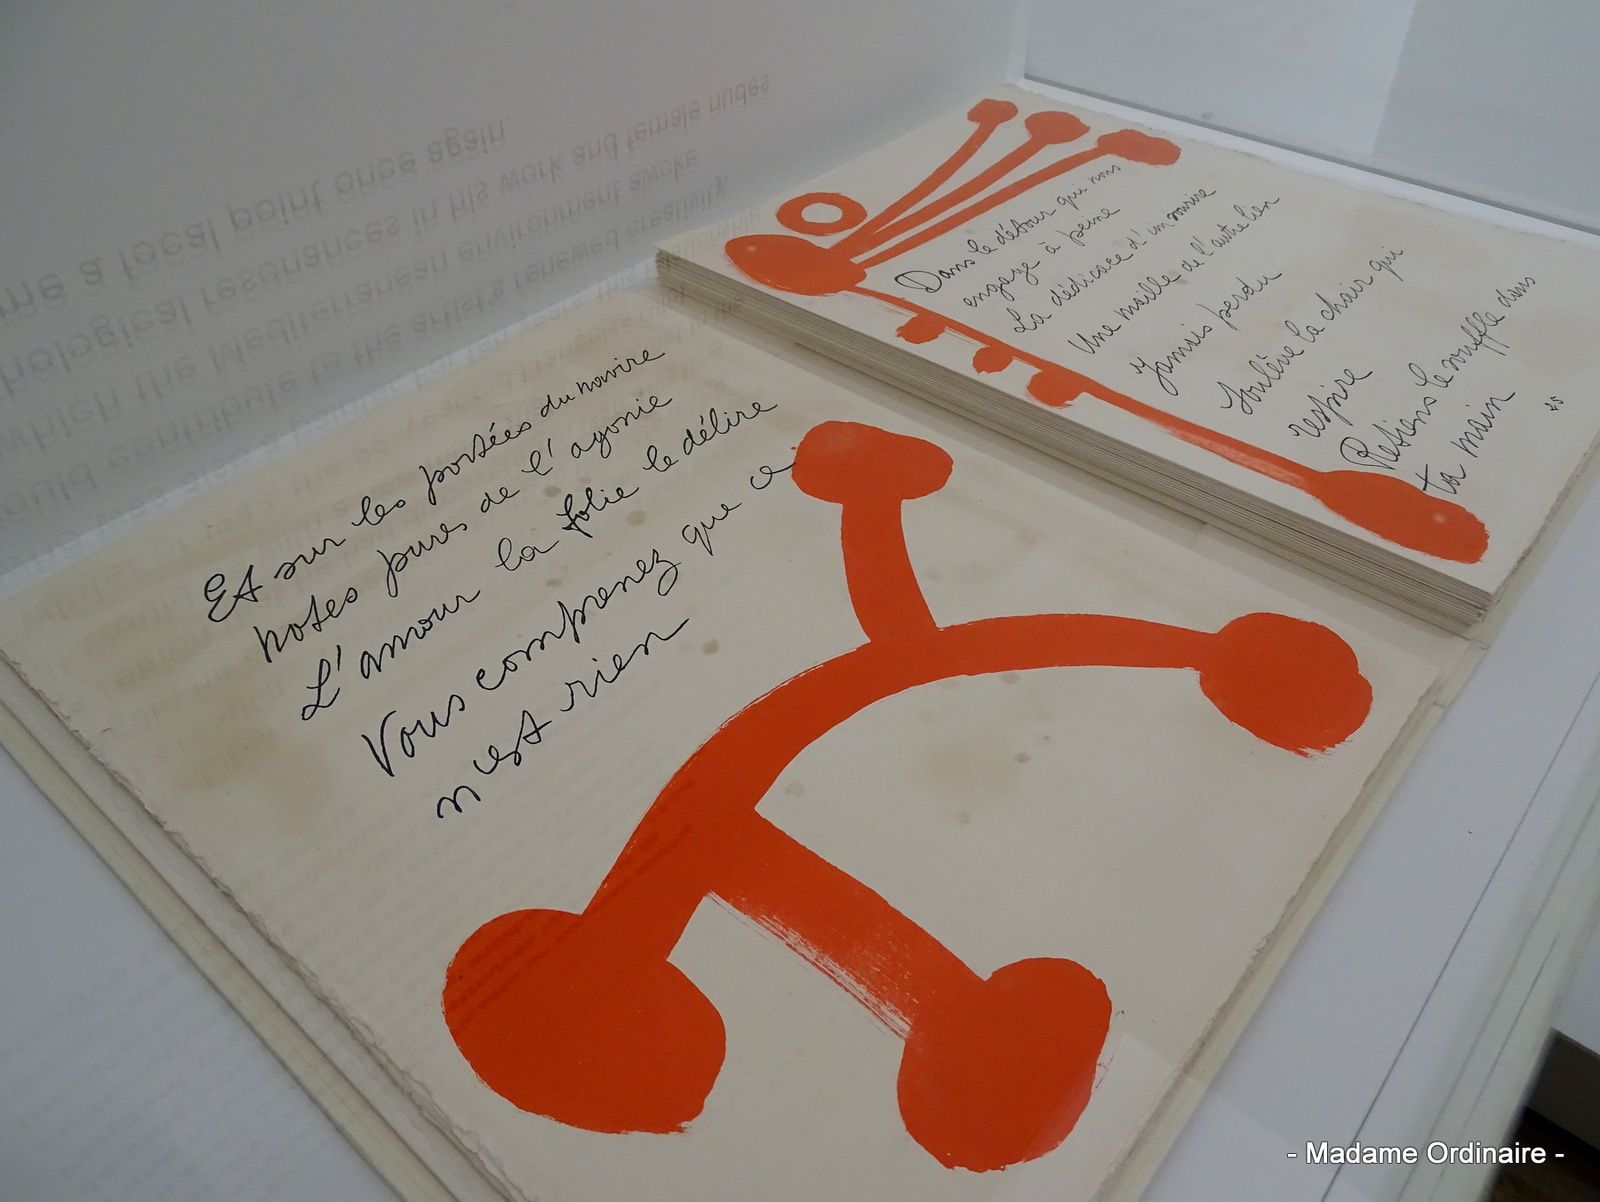 Et sur les portées du navire
notes pures de l'agonie
L'amour la folie le délire
Vous comprenez que ce
n'est rien
Dans le détour qui nous
engage à peine
La dédicace d'un sourire
Une maille de l'autre lien
Jamais perdu
Soulève la chair qui
respire
Retiens le souffle dans
ta main
25
me a focal point once again.
hological resonances in his work and female nudes
which the Mediterranean environment awoke
ould contribute to the artist's renewed creativity.
- Madame Ordinaire -